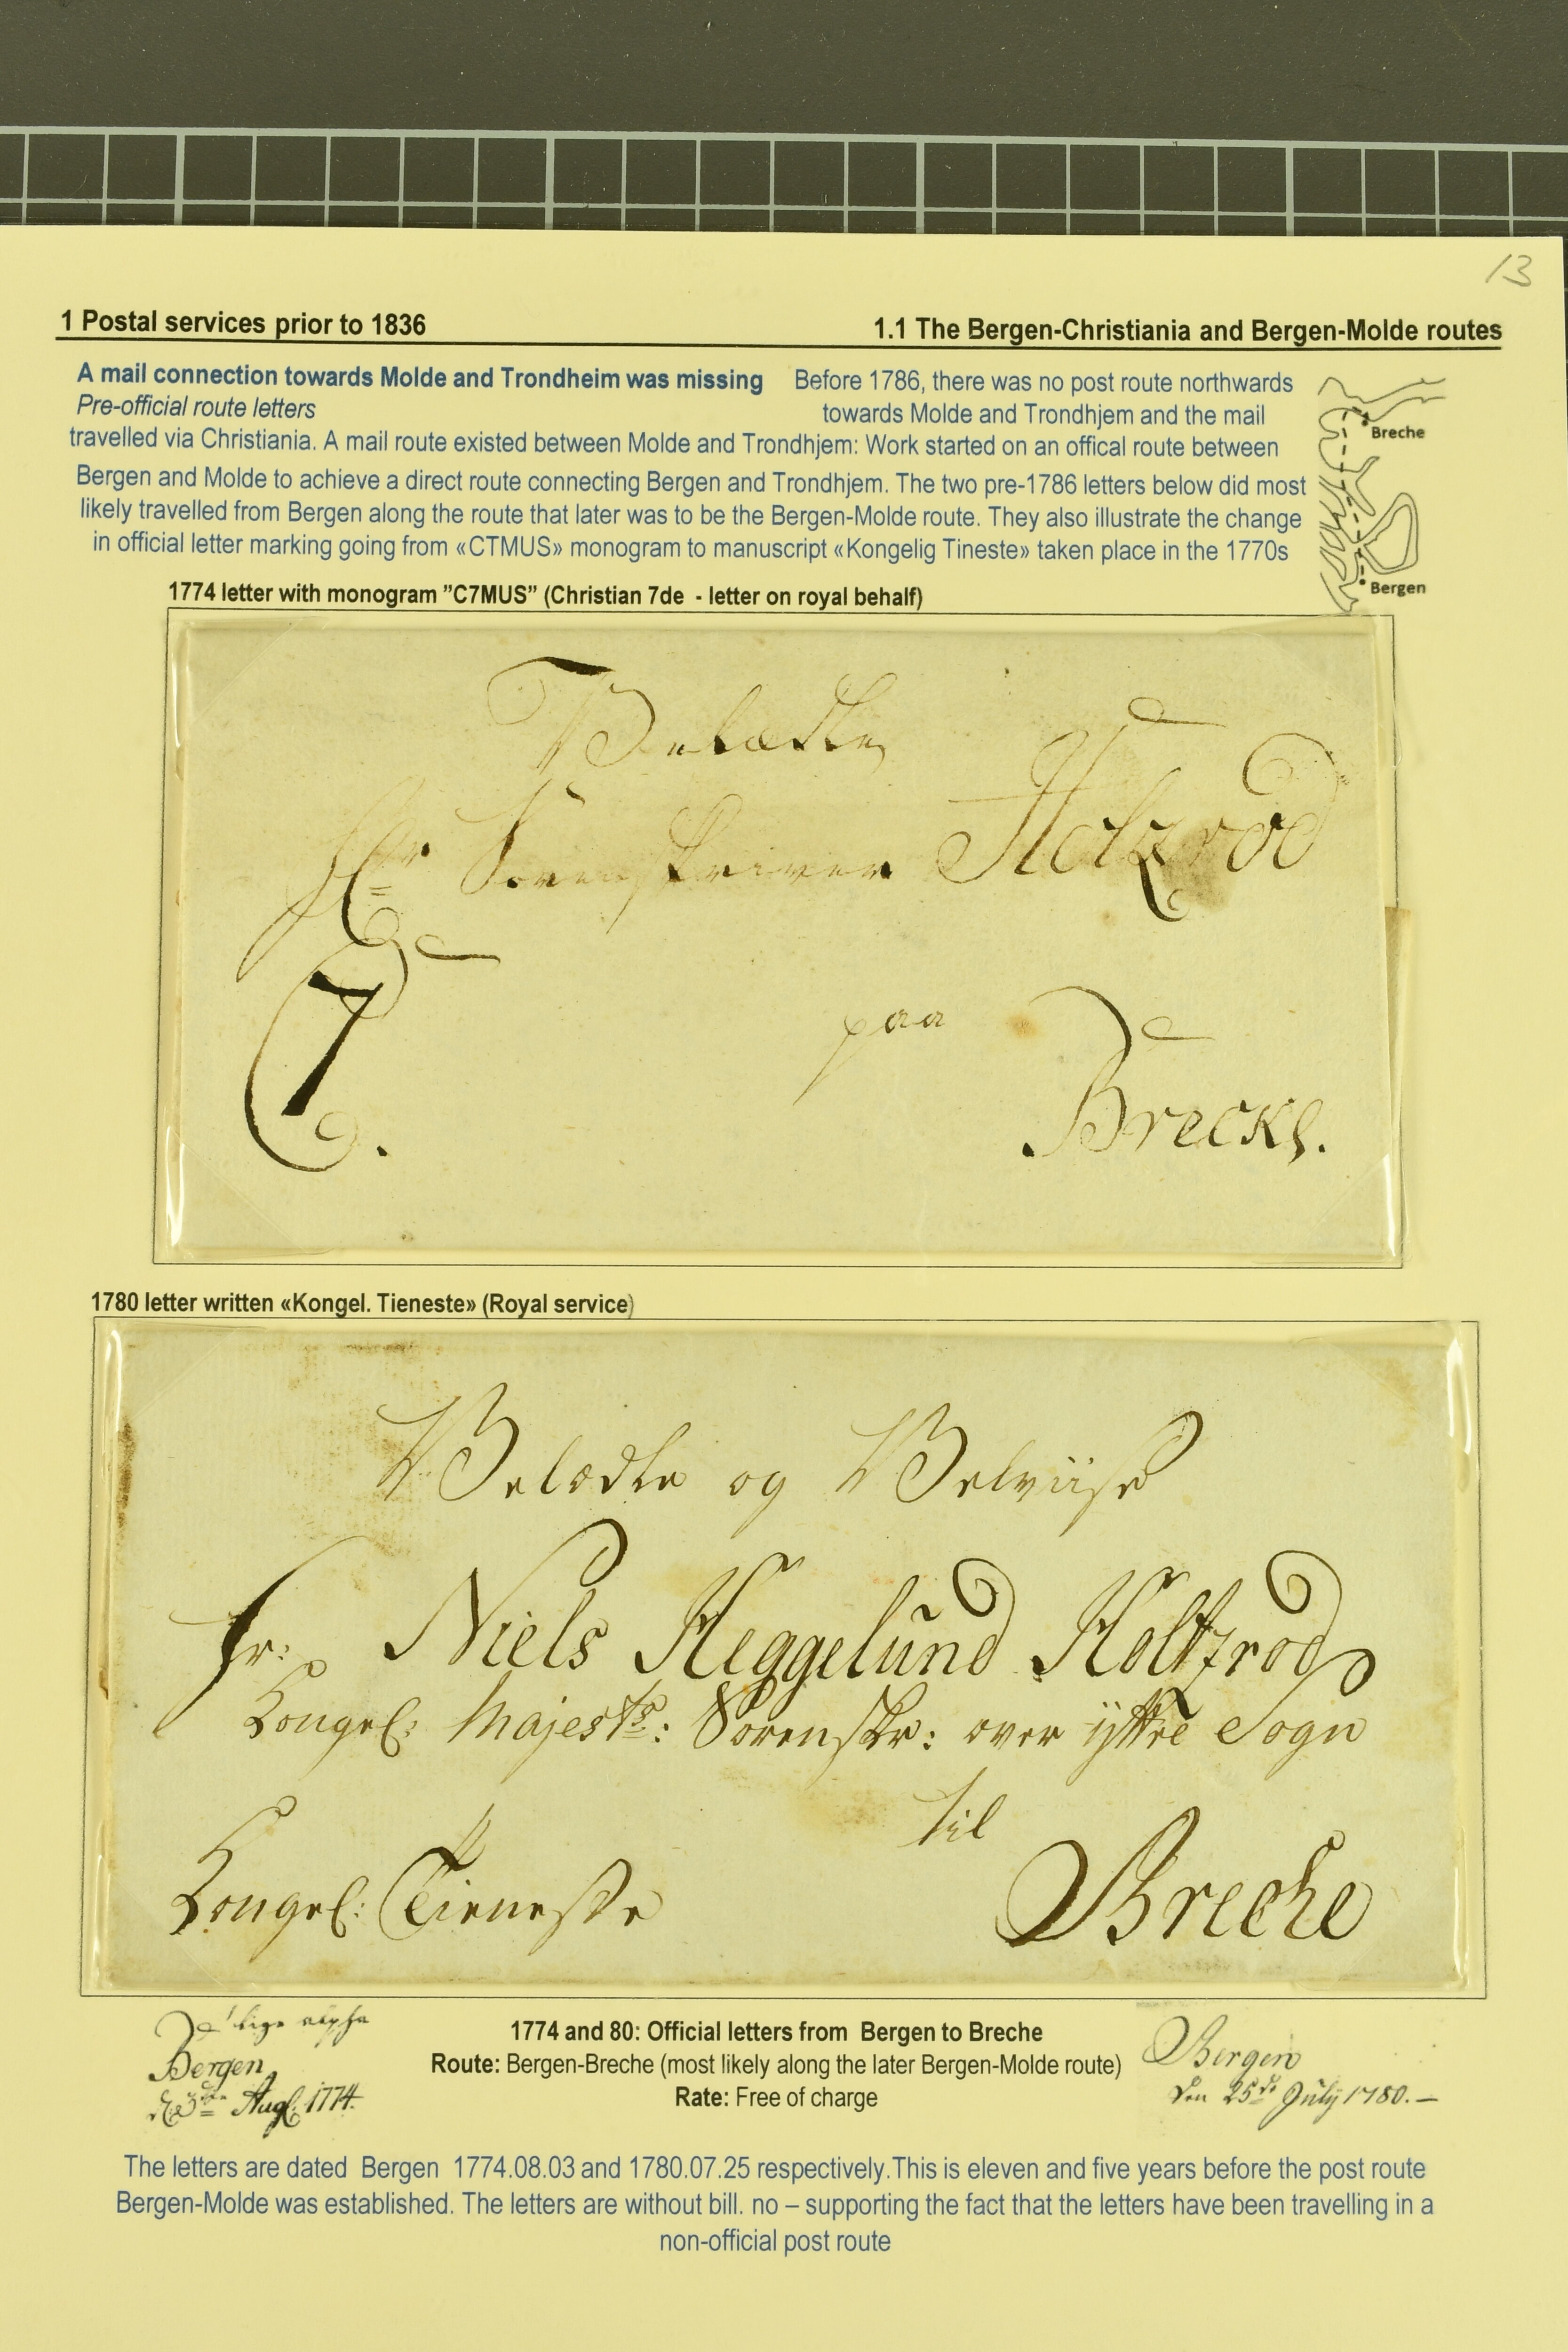 13
1 Postal services prior to 1836
1.1 The Bergen-Christiania and Bergen-Molde routes
A mail connection towards Molde and Trondheim was missing
Before 1786, there was no post route northwards
Pre-official route letters
towards Molde and Trondhjem and the mail
travelled via Christiania. A mail route existed between Molde and Trondhjem: Work started on an offical route between
Bergen and Molde to achieve a direct route connecting Bergen and Trondhjem. The two pre-1786 letters below did most
likely travelled from Bergen along the route that later was to be the Bergen-Molde route. They also illustrate the change
in official letter marking going from «CTMUS» monogram to manuscript «Kongelig Tineste» taken place in the 1770s
Breche
Bergen
1774 letter with monogram ”C7MUS” (Christian 7de - letter on royal behalf)
Velædle
Hr Sorenskriver Holzrod
C7.
paa
Brecke.
1780 letter written «Kongel. Tieneste» (Royal service)
Velædle og Velviise
Hr: Niels Heggelund Holtzrod
Kongel: Majests: Sorenskr: over ÿttre Sogn
til
Kongel: Tieneste
Breche
Bergen
d 3de Augl: 1774.
1774 and 80: Official letters from Bergen to Breche
Route: Bergen-Breche (most likely along the later Bergen-Molde route)
Rate: Free of charge
Bergen
den 25de Julÿ 1780.–
The letters are dated Bergen 1774.08.03 and 1780.07.25 respectively.This is eleven and five years before the post route
Bergen-Molde was established. The letters are without bill. no – supporting the fact that the letters have been travelling in a
non-official post route